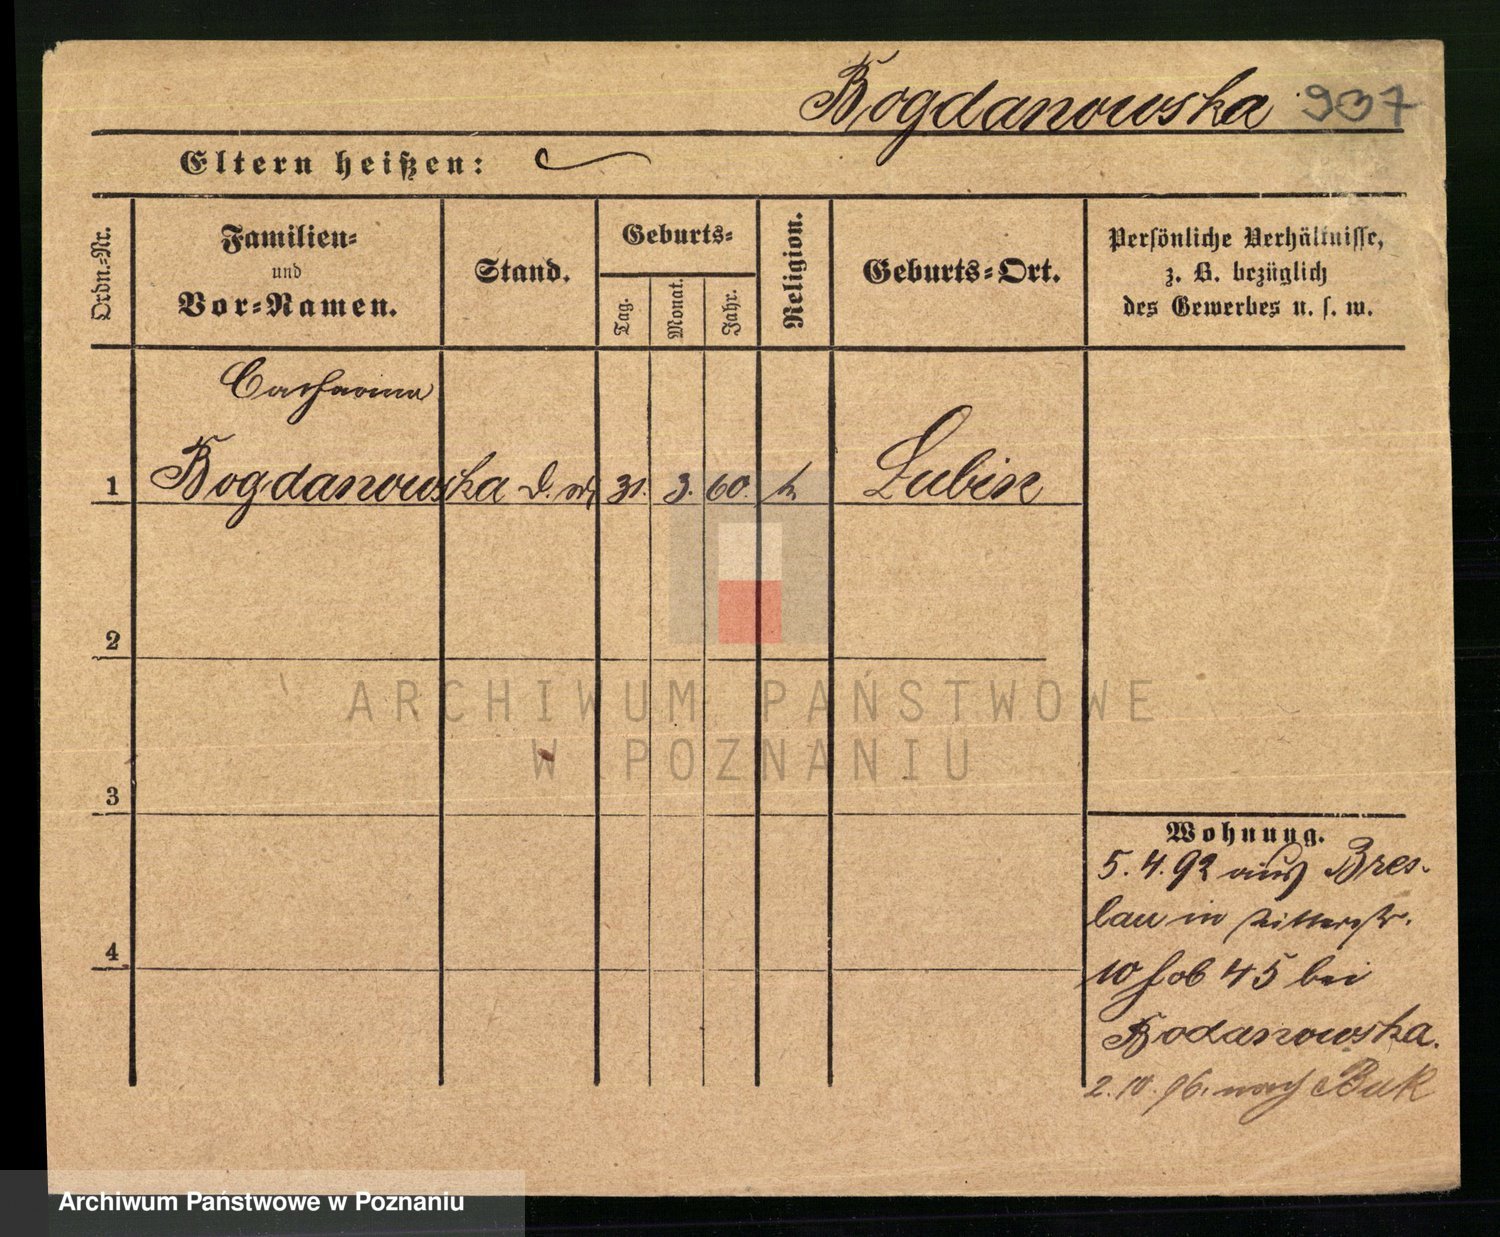 Bogdanowska 937
Eltern heißen:
Ordn.-Nr.
Familien-
und
Vor-Namen.
Stand.
Geburts-
Tag.
Monat.
Jahr.
Religion.
Geburts-Ort.
Persönliche Verhältnisse,
z. B. bezüglich
des Gewerbes u. s. w.
Catharina
1 Bogdanowska 31. 3. 60. k Lubin
2
3
4
Wohnung.
5. 4. 92 aus Bres-
lau in Ritterstr.
10 f ob 45 bei
Bodanowska.
2. 10. 96. nach Buk
ARCHIWUM PAŃSTWOWE
W POZNANIU
Archiwum Państwowe w Poznaniu